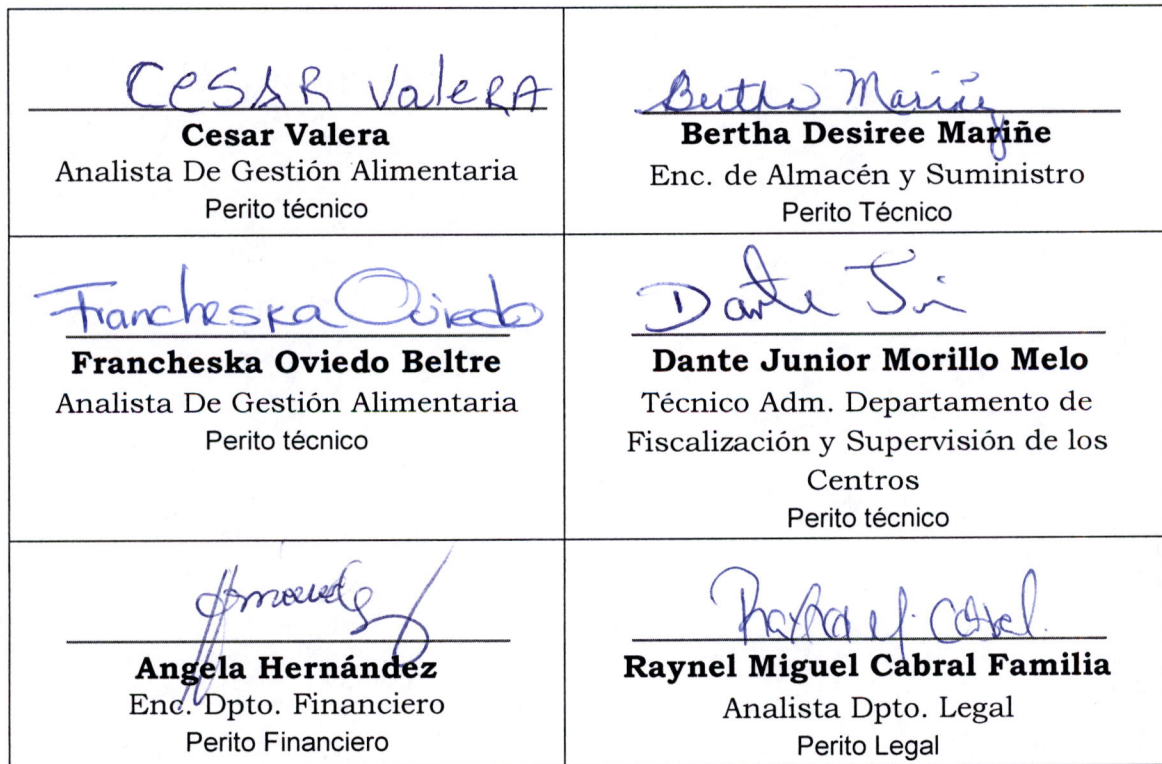 CESAR Valera
Cesar Valera
Analista De Gestión Alimentaria
Perito técnico
Bertha Mariñe
Bertha Desiree Mariñe
Enc. de Almacén y Suministro
Perito Técnico
Francheska Oviedo
Francheska Oviedo Beltre
Analista De Gestión Alimentaria
Perito técnico
Dante
Dante Junior Morillo Melo
Técnico Adm. Departamento de
Fiscalización y Supervisión de los
Centros
Perito técnico
Angela Hernández
Enc. Dpto. Financiero
Perito Financiero
Raynel Miguel Cabral Familia
Analista Dpto. Legal
Perito Legal